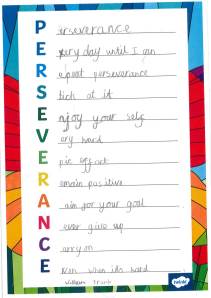 P erseverance
E very day until I can
R epeat perseverance
S tick at it
E njoy your self
V ery hard
E pic effort
R emain positive
A aim for your goal
N ever give up
C arry on
E ven when its hard
William
twinkl